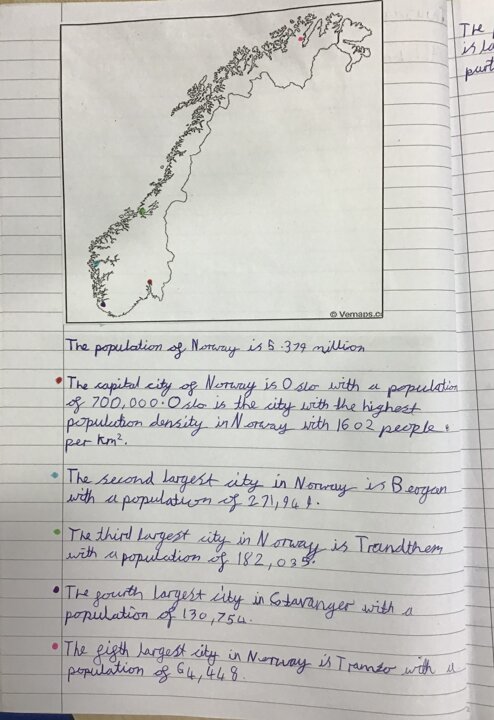 The
is la
part
© Vemaps.c
The population of Norway is 5.379 million
The capital city of Norway is Oslo with a population
of 700,000. Oslo is the city with the highest
population density in Norway with 1602 people
per km².
The second largest city in Norway is Beogan
with a population of 271,941.
The third largest city in Norway is Trandthem
with a population of 182,035.
The fourth largest city in Sotavanger with a
population of 130,754.
The fifth largest city in Norway is Tramso with a
population of 64,448.